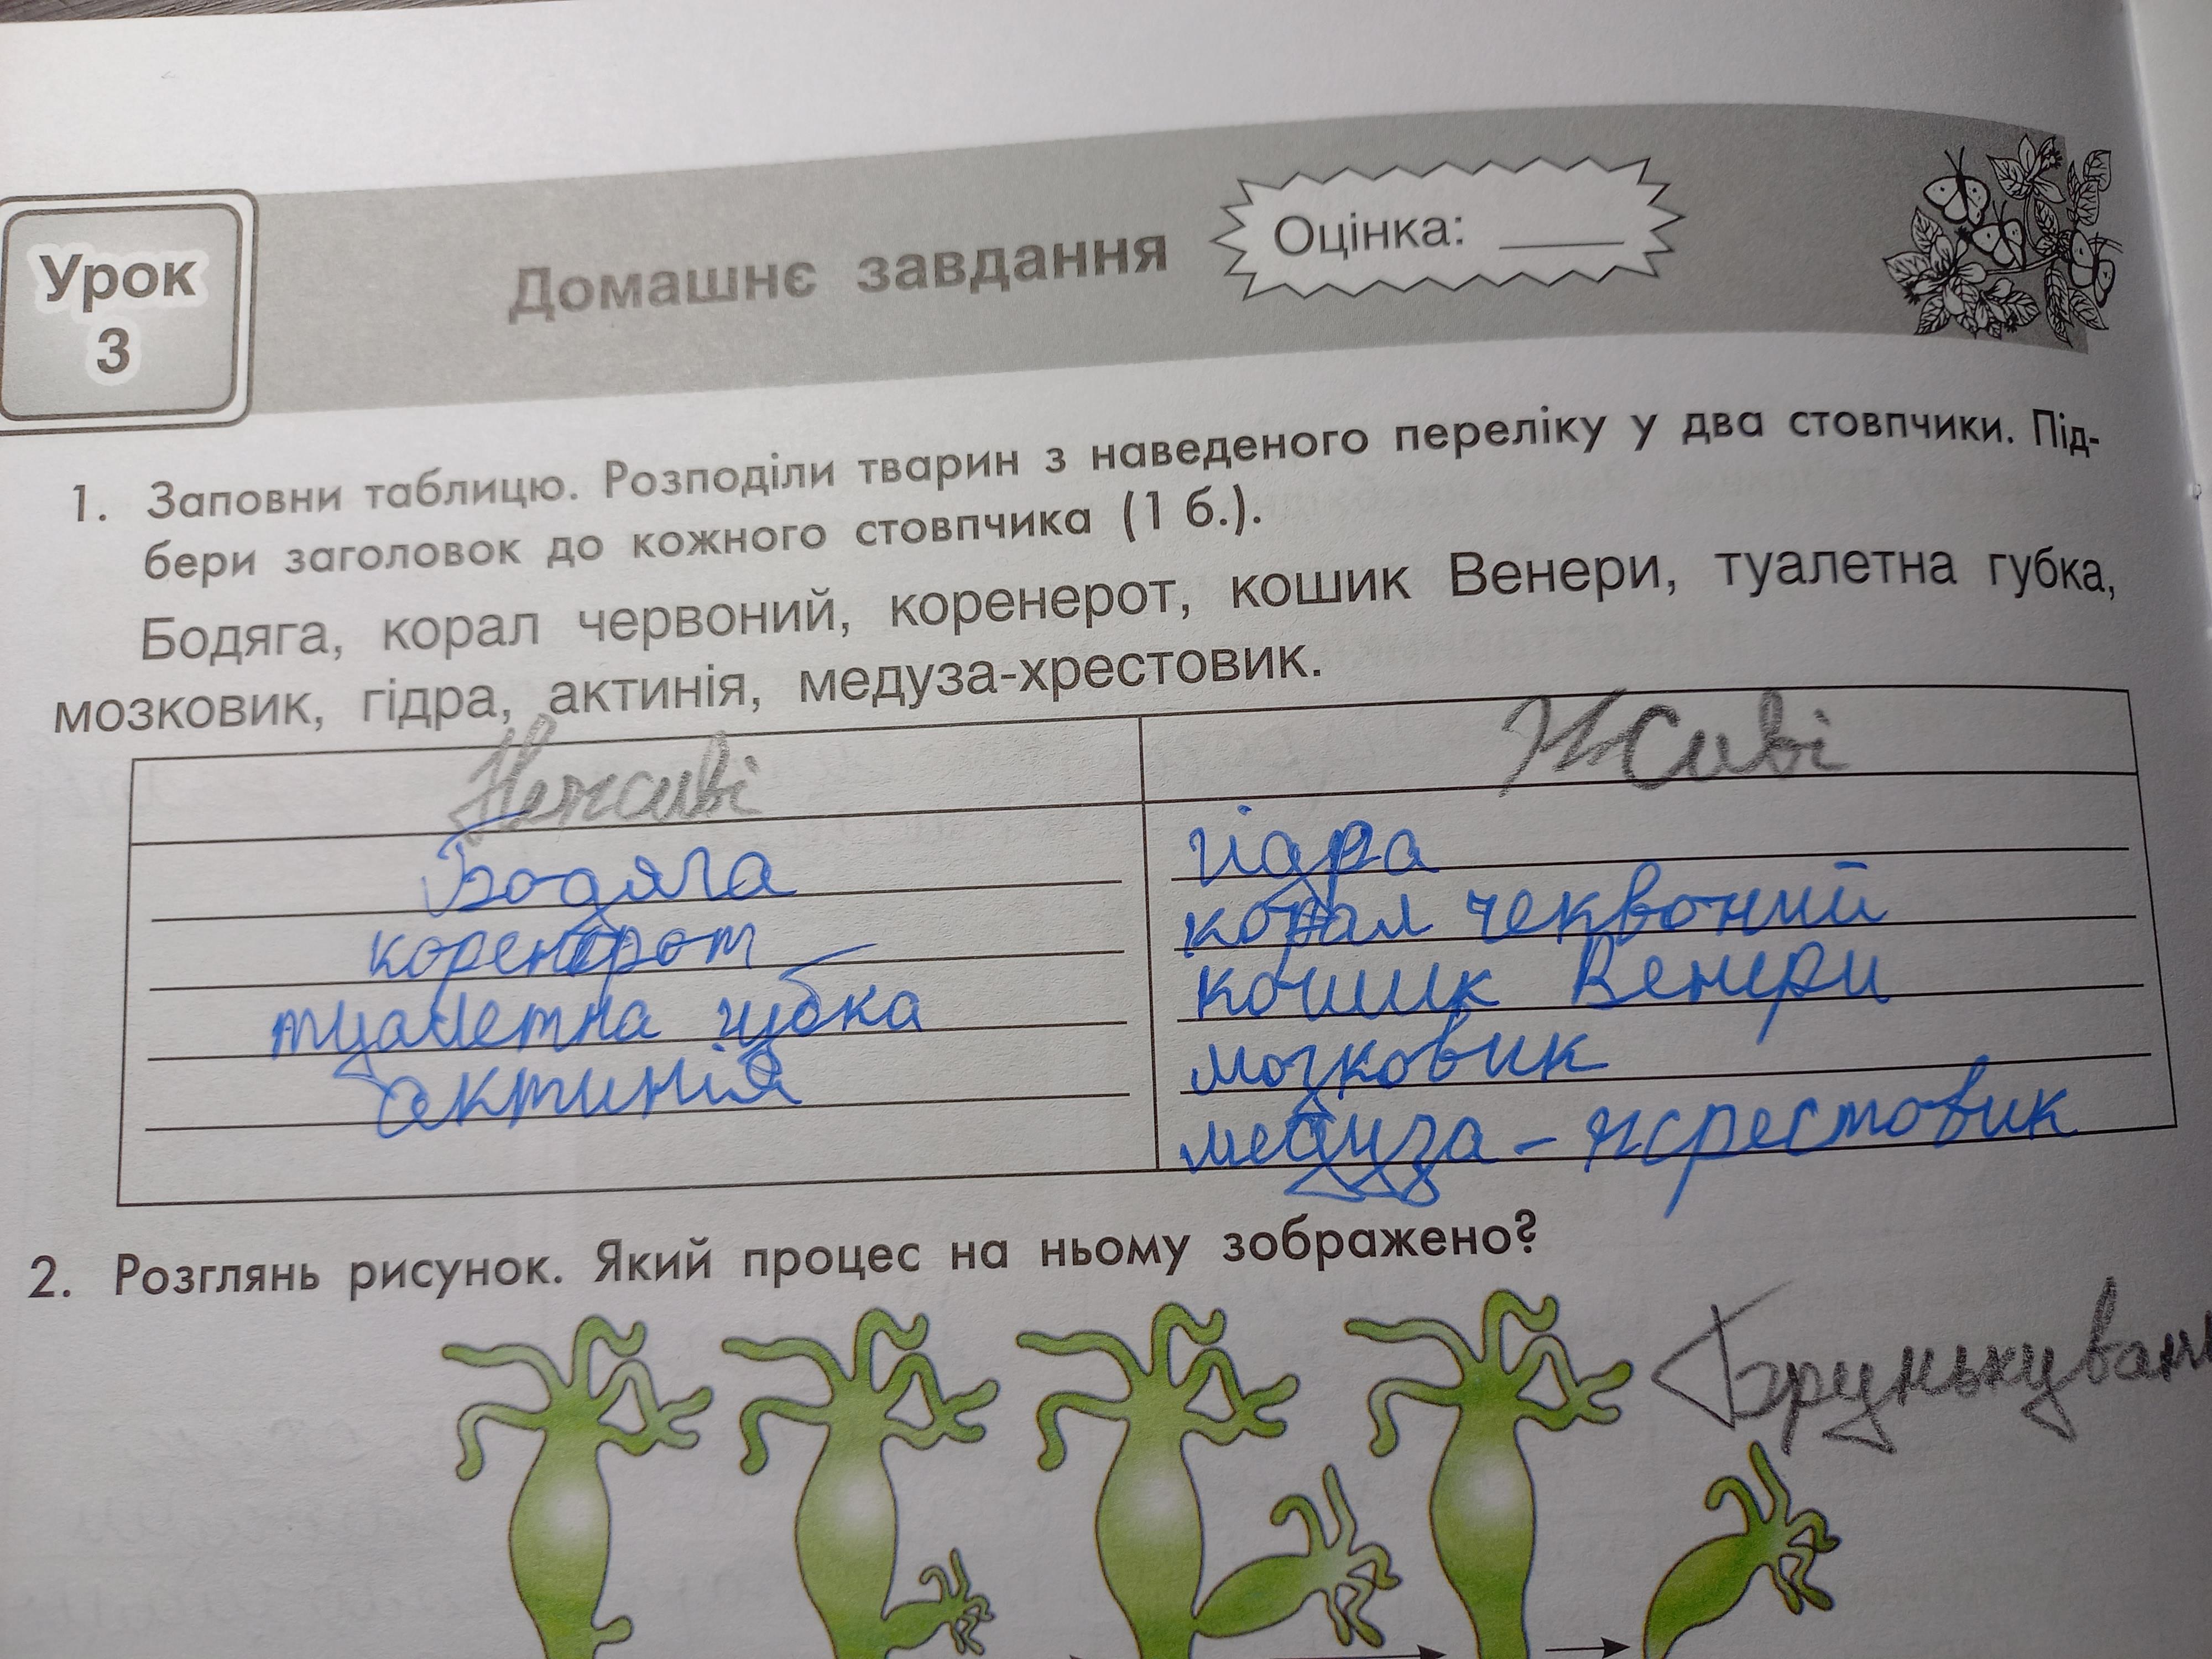 Урок
3
Домашнє завдання
Оцінка:
1. Заповни таблицю. Розподіли тварин з наведеного переліку у два стовпчики. Під-
бери заголовок до кожного стовпчика (1 б.).
Бодяга, корал червоний, коренерот, кошик Венери, туалетна губка,
мозковик, гідра, актинія, медуза-хрестовик.
Неживі
Живі
Бодяга
гідра
коренерот
корал чеквоний
туалетна губка
кошик Венери
актинія
мозковик
медуза-хрестовик
2. Розглянь рисунок. Який процес на ньому зображено?
Брунькуван